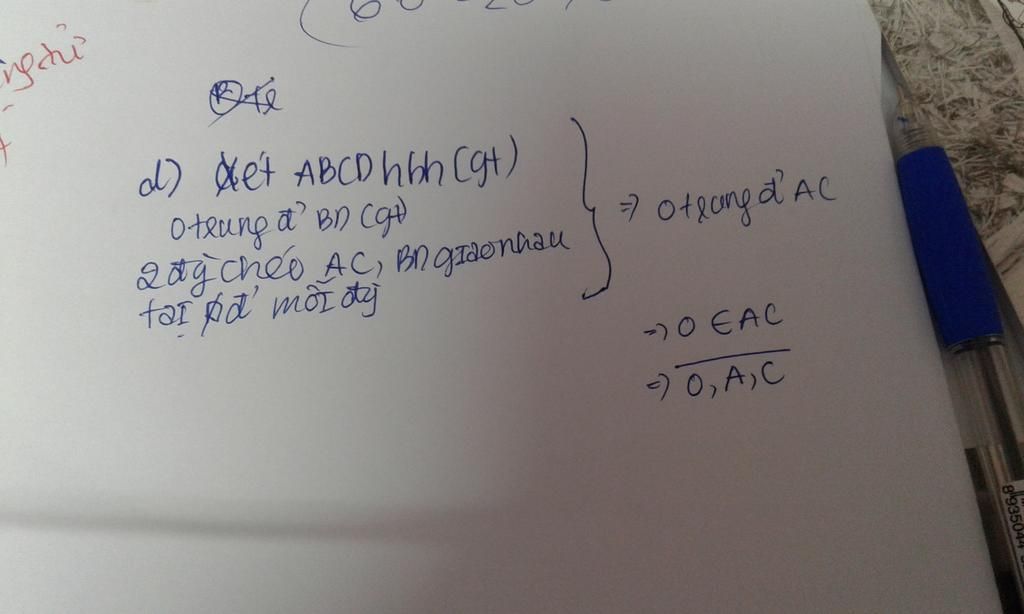 d) Xét ABCD hbh (gt)
O trung đ' BD (gt)
2 đg chéo AC, BD giao nhau
tại đ' mỗi đg
=> O trung đ' AC
=> O ∈ AC
=> O, A, C